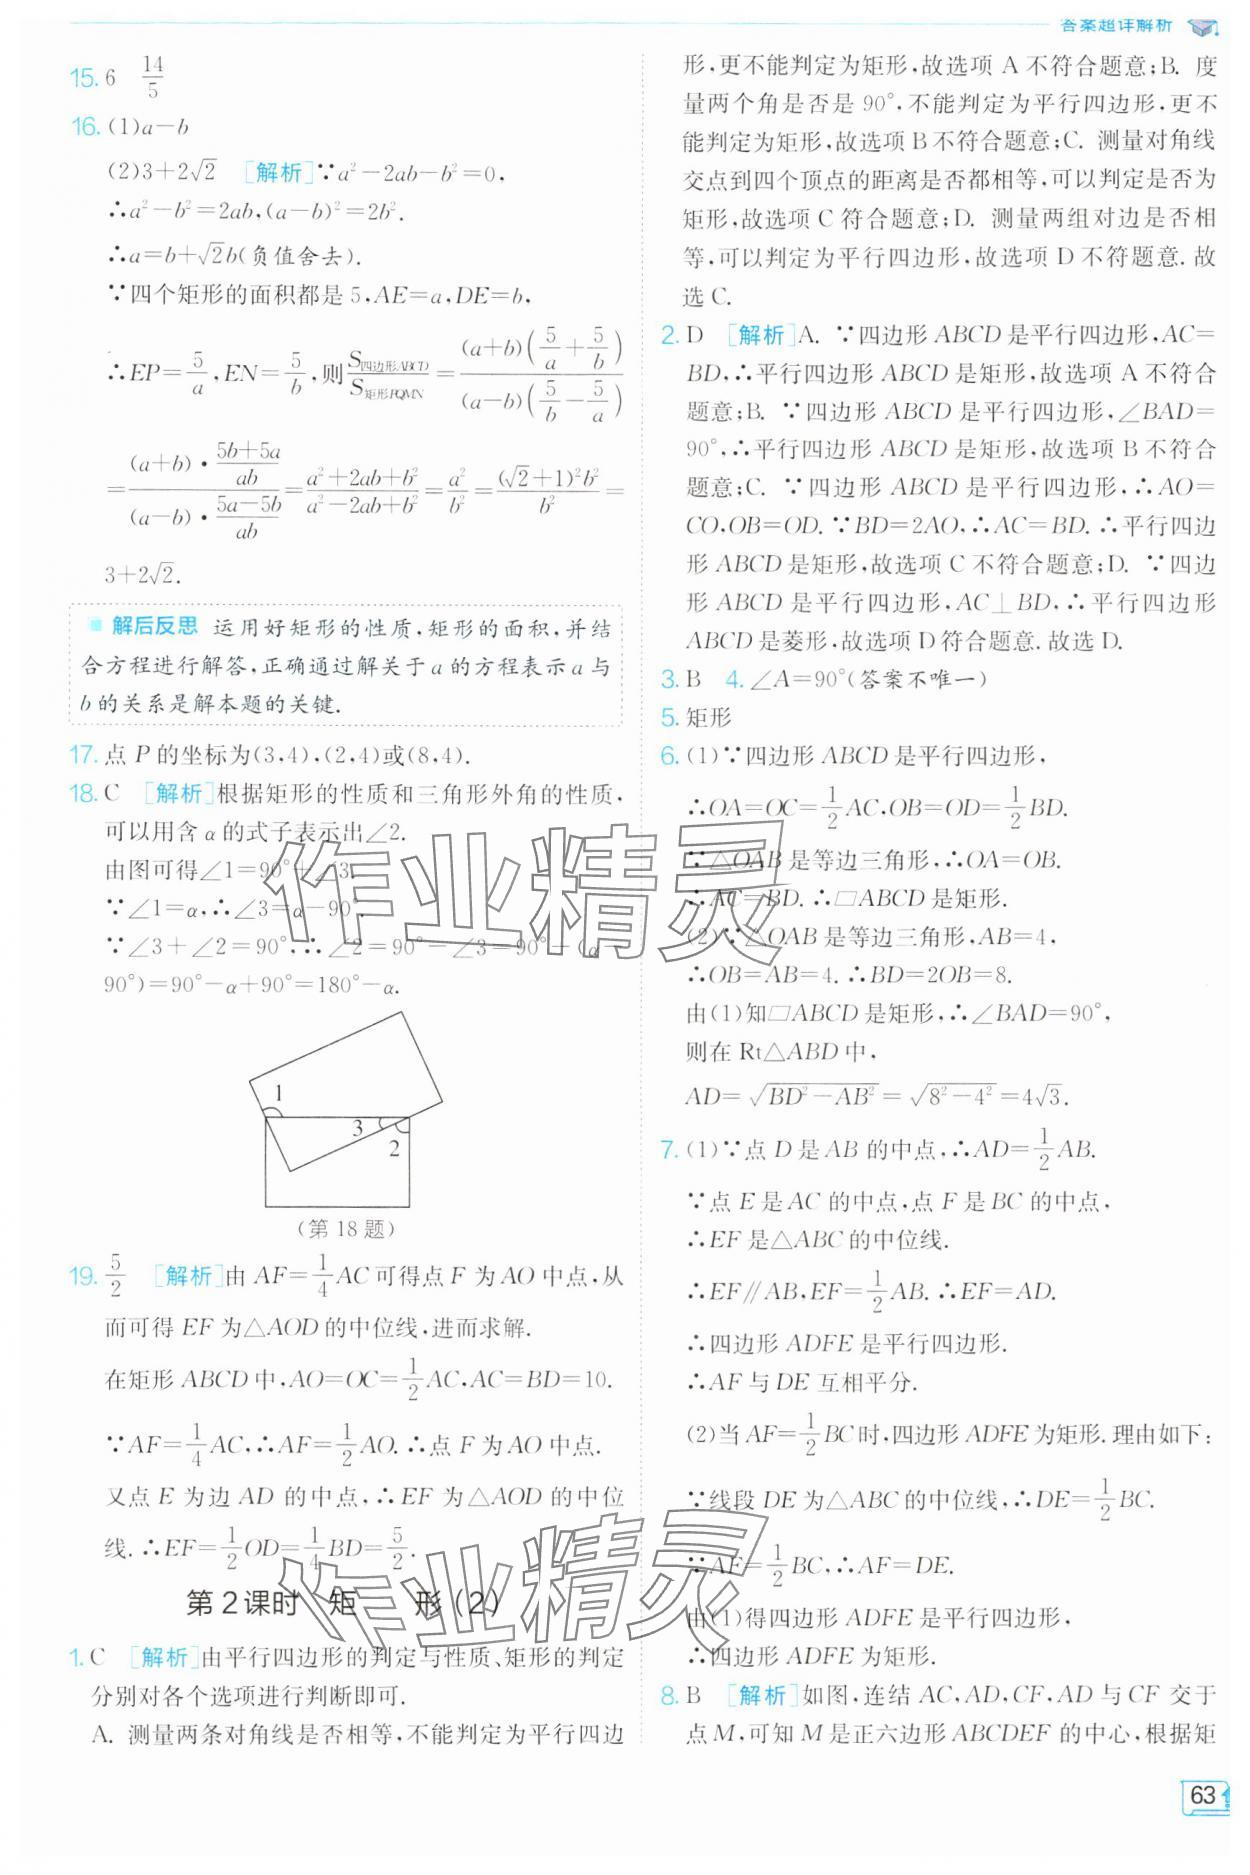 答案超详解析
15. 6　14/5
16. (1)a－b
(2)3＋2√2　[解析]∵a²－2ab－b²＝0，
∴a²－b²＝2ab，(a－b)²＝2b².
∴a＝b＋√2b(负值舍去).
∵四个矩形的面积都是5，AE＝a，DE＝b，
∴EP＝5/a，EN＝5/b，则S四边形ABCD/S矩形PQMN＝(a＋b)(5/a＋5/b)/(a－b)(5/b－5/a)
＝(a＋b)·(5b＋5a)/ab/(a－b)·(5a－5b)/ab＝(a²＋2ab＋b²)/(a²－2ab＋b²)＝a²/b²＝(√2＋1)²b²/b²＝
3＋2√2.
解后反思　运用好矩形的性质，矩形的面积，并结
合方程进行解答，正确通过解关于a的方程表示a与
b的关系是解本题的关键.
17. 点P的坐标为(3,4)，(2,4)或(8,4).
18. C　[解析]根据矩形的性质和三角形外角的性质，
可以用含α的式子表示出∠2.
由图可得∠1＝90°＋∠3.
∵∠1＝α，∴∠3＝α－90°.
∵∠3＋∠2＝90°，∴∠2＝90°－∠3＝90°－(α－
90°)＝90°－α＋90°＝180°－α.
1
3
2
(第18题)
19. 5/2　[解析]由AF＝1/4AC可得点F为AO中点，从
而可得EF为△AOD的中位线，进而求解.
在矩形ABCD中，AO＝OC＝1/2AC，AC＝BD＝10.
∵AF＝1/4AC，∴AF＝1/2AO.∴点F为AO中点.
又点E为边AD的中点，∴EF为△AOD的中位
线.∴EF＝1/2OD＝1/4BD＝5/2.
第2课时　矩　形(2)
1. C　[解析]由平行四边形的判定与性质、矩形的判定
分别对各个选项进行判断即可.
A. 测量两条对角线是否相等，不能判定为平行四边
形，更不能判定为矩形，故选项A不符合题意；B. 度
量两个角是否是90°，不能判定为平行四边形，更不
能判定为矩形，故选项B不符合题意；C. 测量对角线
交点到四个顶点的距离是否都相等，可以判定是否为
矩形，故选项C符合题意；D. 测量两组对边是否相
等，可以判定为平行四边形，故选项D不符题意.故
选C.
2. D　[解析]A. ∵四边形ABCD是平行四边形，AC＝
BD，∴平行四边形ABCD是矩形，故选项A不符合
题意；B. ∵四边形ABCD是平行四边形，∠BAD＝
90°，∴平行四边形ABCD是矩形，故选项B不符合
题意；C. ∵四边形ABCD是平行四边形，∴AO＝
CO，OB＝OD.∵BD＝2AO，∴AC＝BD.∴平行四边
形ABCD是矩形，故选项C不符合题意；D. ∵四边
形ABCD是平行四边形，AC⊥BD，∴平行四边形
ABCD是菱形，故选项D符合题意.故选D.
3. B　4. ∠A＝90°(答案不唯一)
5. 矩形
6. (1)∵四边形ABCD是平行四边形，
∴OA＝OC＝1/2AC，OB＝OD＝1/2BD.
∵△OAB是等边三角形，∴OA＝OB.
∴AC＝BD.∴□ABCD是矩形.
(2)∵△OAB是等边三角形，AB＝4，
∴OB＝AB＝4.∴BD＝2OB＝8.
由(1)知□ABCD是矩形，∴∠BAD＝90°，
则在Rt△ABD中，
AD＝√(BD²－AB²)＝√(8²－4²)＝4√3.
7. (1)∵点D是AB的中点，∴AD＝1/2AB.
∵点E是AC的中点，点F是BC的中点，
∴EF是△ABC的中位线.
∴EF∥AB，EF＝1/2AB.∴EF＝AD.
∴四边形ADFE是平行四边形.
∴AF与DE互相平分.
(2)当AF＝1/2BC时，四边形ADFE为矩形.理由如下：
∵线段DE为△ABC的中位线，∴DE＝1/2BC.
∵AF＝1/2BC，∴AF＝DE.
由(1)得四边形ADFE是平行四边形，
∴四边形ADFE为矩形.
8. B　[解析]如图，连结AC，AD，CF，AD与CF交于
点M，可知M是正六边形ABCDEF的中心，根据矩
63
作业精灵
作业精灵